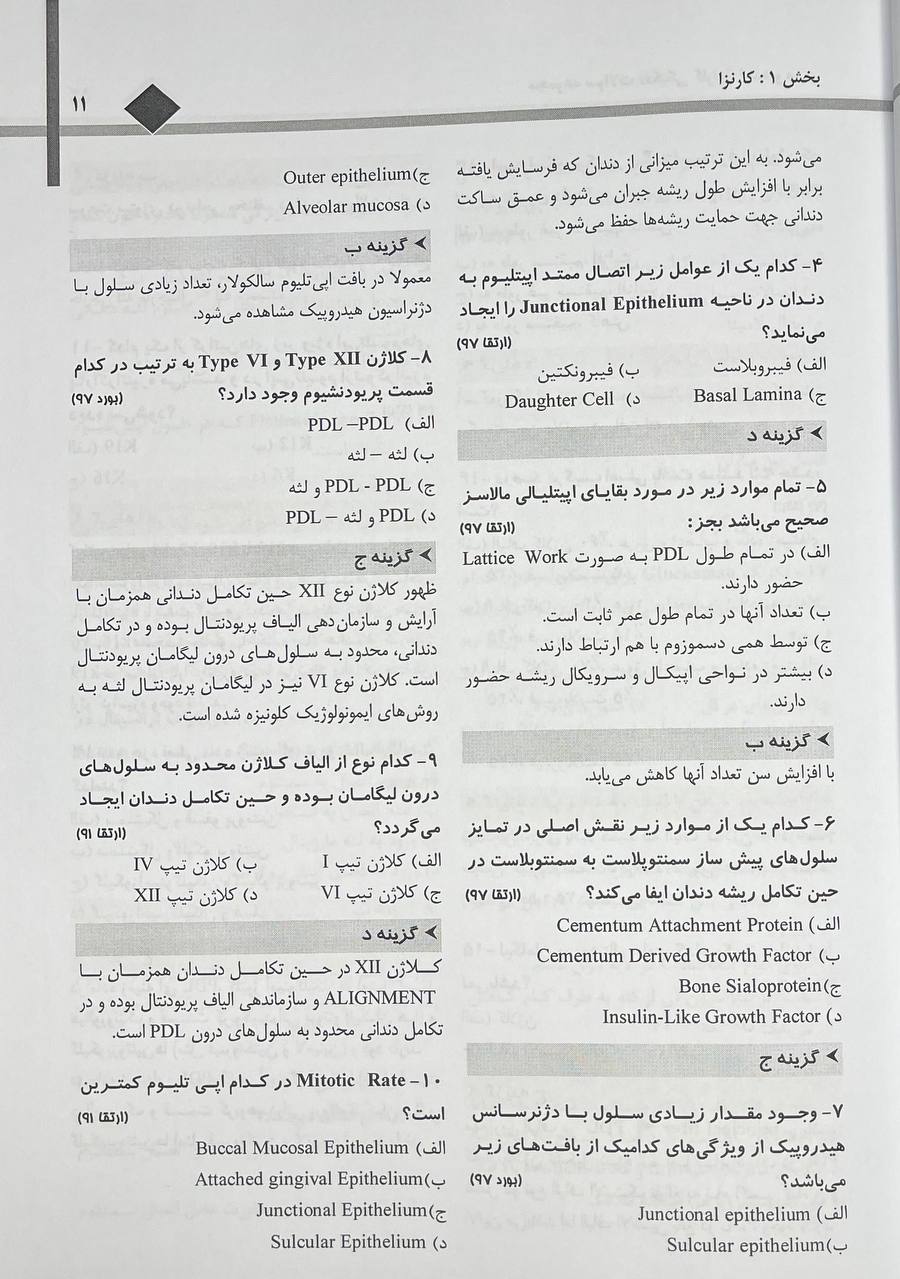 بخش ۱: کارنزا
۱۱
می‌شود. به این ترتیب میزانی از دندان که فرسایش یافته
برابر با افزایش طول ریشه جبران می‌شود و عمق ساکت
دندانی جهت حمایت ریشه‌ها حفظ می‌شود.
۴- کدام یک از عوامل زیر اتصال ممتد اپیتلیوم به
دندان در ناحیه Junctional Epithelium را ایجاد
می‌نماید؟ (ارتقا ۹۷)
الف) فیبروبلاست ب) فیبرونکتین
ج) Basal Lamina د) Daughter Cell
گزینه د
۵- تمام موارد زیر در مورد بقایای اپیتلیالی مالاسز
صحیح می‌باشد بجز: (ارتقا ۹۷)
الف) در تمام طول PDL به صورت Lattice Work
حضور دارند.
ب) تعداد آنها در تمام طول عمر ثابت است.
ج) توسط همی دسموزوم با هم ارتباط دارند.
د) بیشتر در نواحی اپیکال و سرویکال ریشه حضور
دارند.
گزینه ب
با افزایش سن تعداد آنها کاهش می‌یابد.
۶- کدام یک از موارد زیر نقش اصلی در تمایز
سلول‌های پیش ساز سمنتوپلاست به سمنتوبلاست در
حین تکامل ریشه دندان ایفا می‌کند؟ (ارتقا ۹۷)
الف) Cementum Attachment Protein
ب) Cementum Derived Growth Factor
ج)Bone Sialoprotein
د) Insulin-Like Growth Factor
گزینه ج
۷- وجود مقدار زیادی سلول با دژنرسانس
هیدروپیک از ویژگی‌های کدامیک از بافت‌های زیر
می‌باشد؟ (بورد ۹۷)
الف) Junctional epithelium
ب)Sulcular epithelium
ج)Outer epithelium
د) Alveolar mucosa
گزینه ب
معمولا در بافت اپی‌تلیوم سالکولار، تعداد زیادی سلول با
دژنراسیون هیدروپیک مشاهده می‌شود.
۸- کلاژن Type XII و Type VI به ترتیب در کدام
قسمت پریودنشیوم وجود دارد؟ (بورد ۹۷)
الف) PDL – PDL
ب) لثه – لثه
ج) PDL - PDL و لثه
د) PDL و لثه – PDL
گزینه ج
ظهور کلاژن نوع XII حین تکامل دندانی همزمان با
آرایش و سازمان‌دهی الیاف پریودنتال بوده و در تکامل
دندانی، محدود به سلول‌های درون لیگامان پریودنتال
است. کلاژن نوع VI نیز در لیگامان پریودنتال لثه به
روش‌های ایمونولوژیک کلونیزه شده است.
۹- کدام نوع از الیاف کلاژن محدود به سلول‌های
درون لیگامان بوده و حین تکامل دندان ایجاد
می‌گردد؟ (ارتقا ۹۱)
الف) کلاژن تیپ I ب) کلاژن تیپ IV
ج) کلاژن تیپ VI د) کلاژن تیپ XII
گزینه د
کلاژن XII در حین تکامل دندان همزمان با
ALIGNMENT و سازماندهی الیاف پریودنتال بوده و در
تکامل دندانی محدود به سلول‌های درون PDL است.
۱۰- Mitotic Rate در کدام اپی تلیوم کمترین
است؟ (ارتقا ۹۱)
الف) Buccal Mucosal Epithelium
ب)Attached gingival Epithelium
ج)Junctional Epithelium
د) Sulcular Epithelium